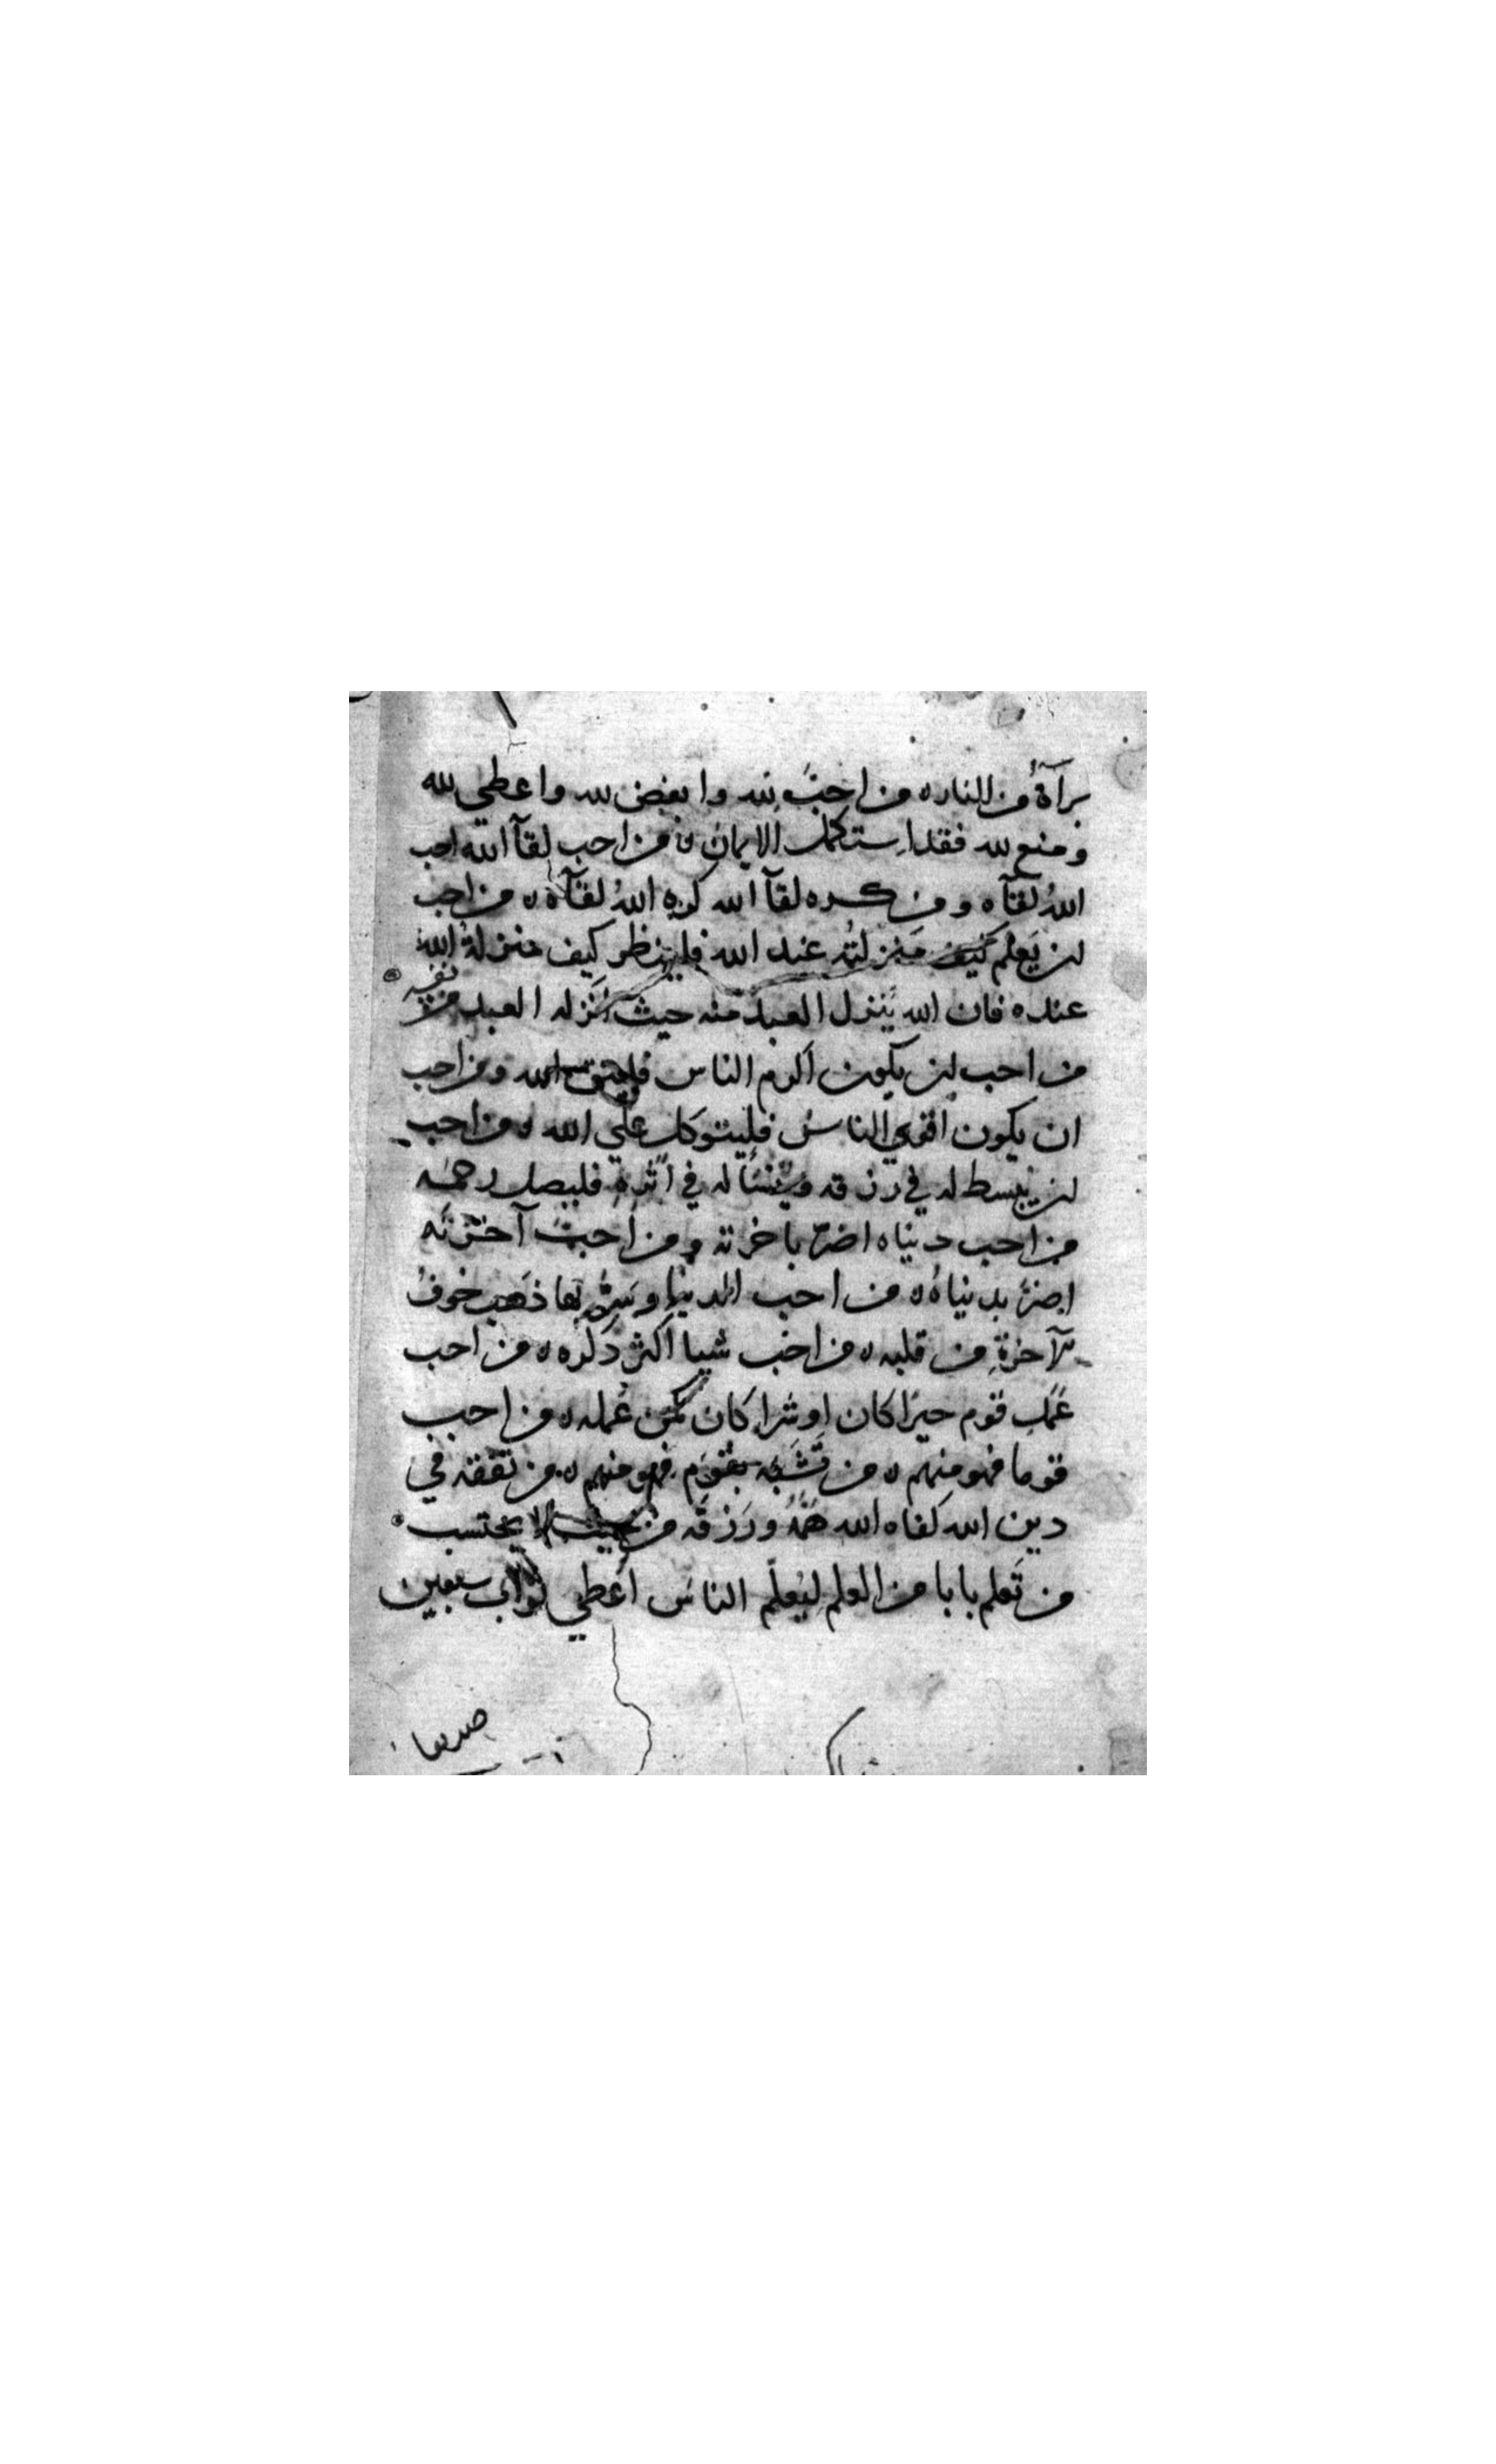 برآةٌ من النار ه من احبَّ لله وابغض لله واعطي لله
ومنع لله فقد استكمل الايمان ه من احب لقآ الله احب
اللهُ لقآه ومن كره لقآ الله كره اللهُ لقآه ه من احب
ان يَعلم كيف مَنزلتُه عند الله فلينظر كيف منزلةُ الله
عنده فان الله يُنزل العبدَ منه حيث انزله العبد من نفسه
من احب ان يكون اكرم الناس فليتق الله ومن احب
ان يكون اقوي الناس فليتوكل علي الله ه من احب
ان يُبسط له في رزقه ويُنسأ له في اثره فليصل رحمه
من احب دنياه اضرّ باخرته ومن احبَّ آخرته
اضرَّ بدنياهُ ه من احب الدنيا وسُرَّ بها ذَهب خوفُ
الآخرةِ من قلبه ه من احب شيا اكثر ذكره ه من احب
عَمَل قوم خيرًا كان او شرا كان كمن عَمله ه من احب
قوما فهو منهم ه من تَشَبَّه بقومٍ فهو منهم ه من تفقه في
دين الله كفاه الله همَّهُ ورَزقَه من حيث لا يحتسب
من تَعلم بابا من العلم ليُعلّم الناسَ اُعطي ثواب سبعين
صديقا